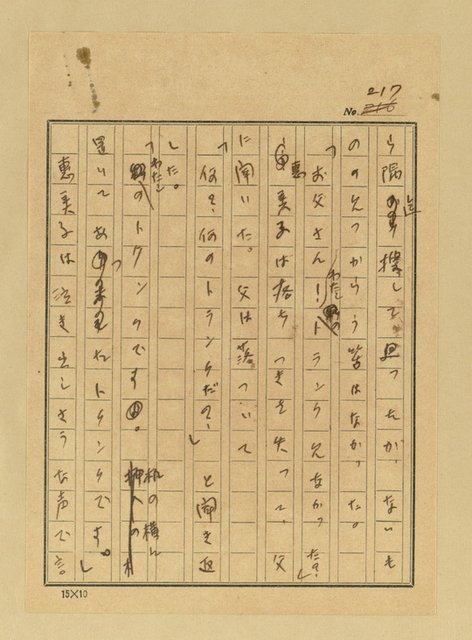 No. 217
ら隅迄探して回ったが、ないも
のの見つからう筈はなかった。
「お父さん!わたしのトランク見なかった?」
恵美子は落ちつきを失って、父
に聞いた。父は落ついて
「何?、何のトランクだ?」と聞き返
した。
「わたしのトランクのです。机の横に
置いてあったトランクです。」
恵美子は泣き出しさうな声で言
15×10